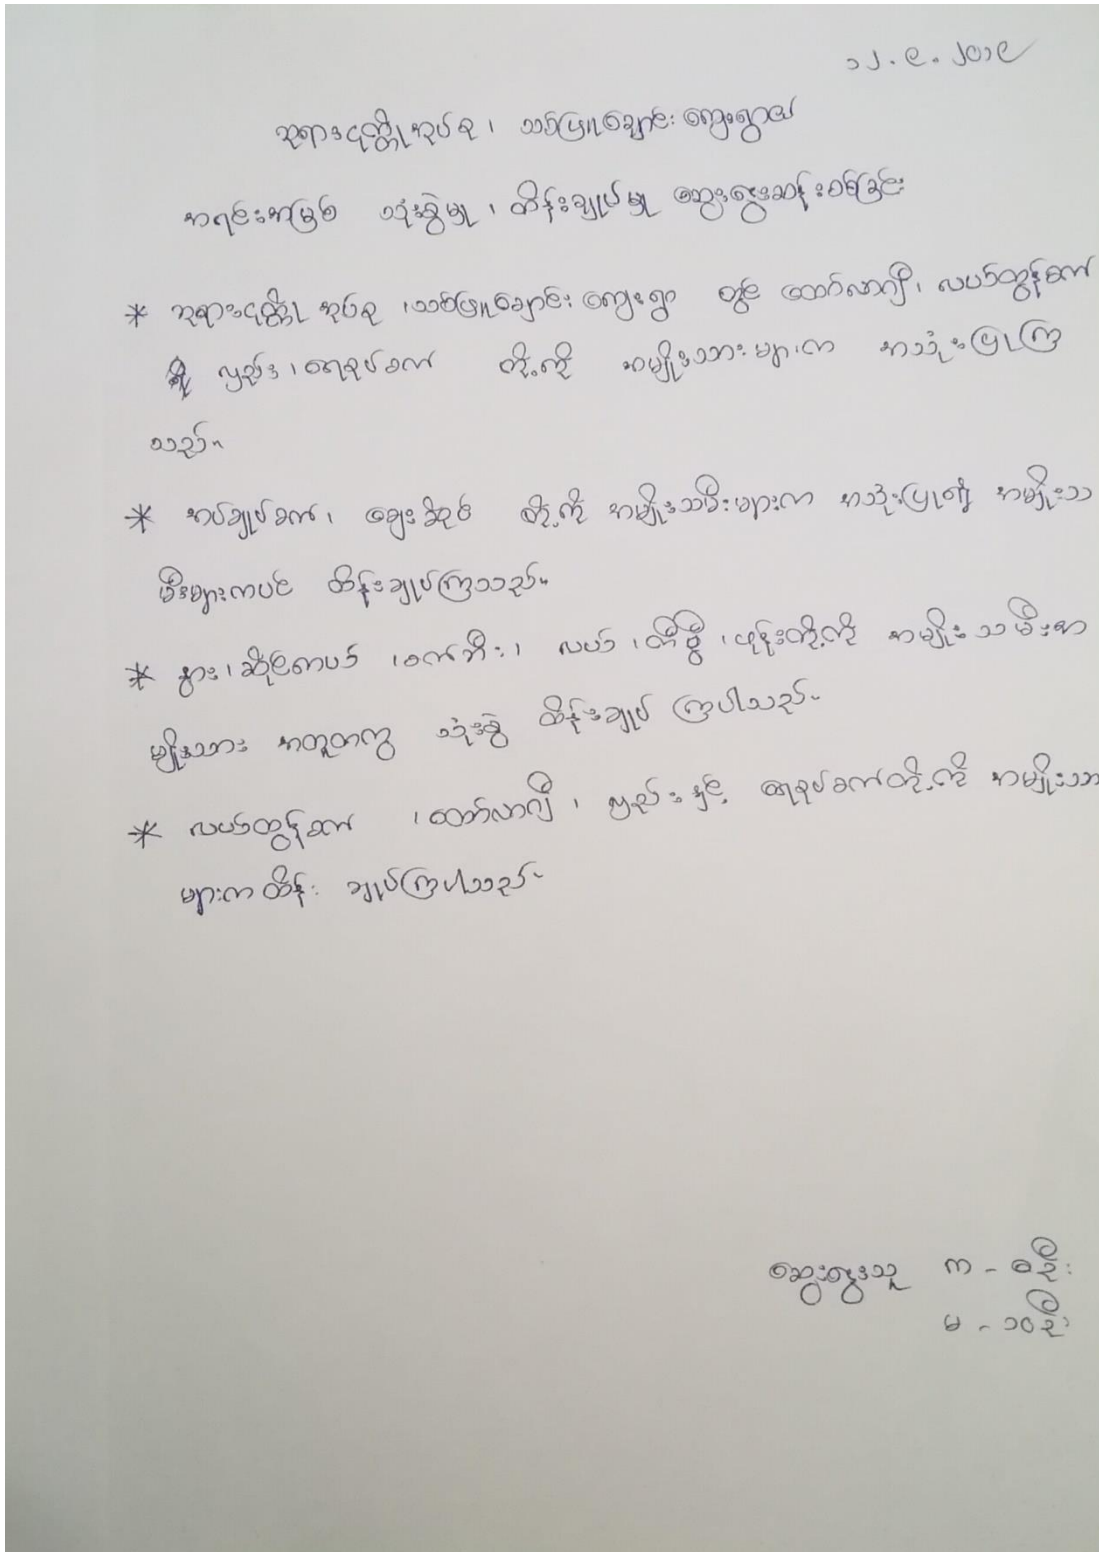 ၁၂.၉.၂၀၁၉
ဘုရားငုတ္တိုအုပ်စု၊ သစ်ဖြူချောင်းကျေးရွာ၏
အရင်းအမြစ် သုံးစွဲမှု၊ ထိန်းချုပ်မှု ဆွေးနွေးဆန်းစစ်ခြင်း
* ဘုရားငုတ္တိုအုပ်စု၊သစ်ဖြူချောင်းကျေးရွာ တွင် ထော်လာဂျီ၊ လယ်ထွန်စက်
လှည်း၊ရေစုပ်စက် တို့ကို အမျိုးသားများက အသုံးပြုကြ
သည်။
* အပ်ချုပ်စက်၊ ဈေးဆိုင် တို့ကို အမျိုးသမီးများက အသုံးပြု၍ အမျိုးသ
မီးများကပင် ထိန်းချုပ်ကြသည်။
* နွား၊ဆိုင်ကယ် ၊စက်ဘီး၊ လယ် ၊တီဗွီ ၊ဖုန်းတို့ကို အမျိုးသမီးအ
မျိုးသား အတူတကွ သုံးစွဲ ထိန်းချုပ် ကြပါသည်။
* လယ်ထွန်စက် ၊ထော်လာဂျီ၊ လှည်းနှင့် ရေစုပ်စက်တို့ကို အမျိုးသာ
များကထိန်း ချုပ်ကြပါသည်။
ဆွေးနွေးသူ က - ၈ဦး
မ - ၁၀ဦး